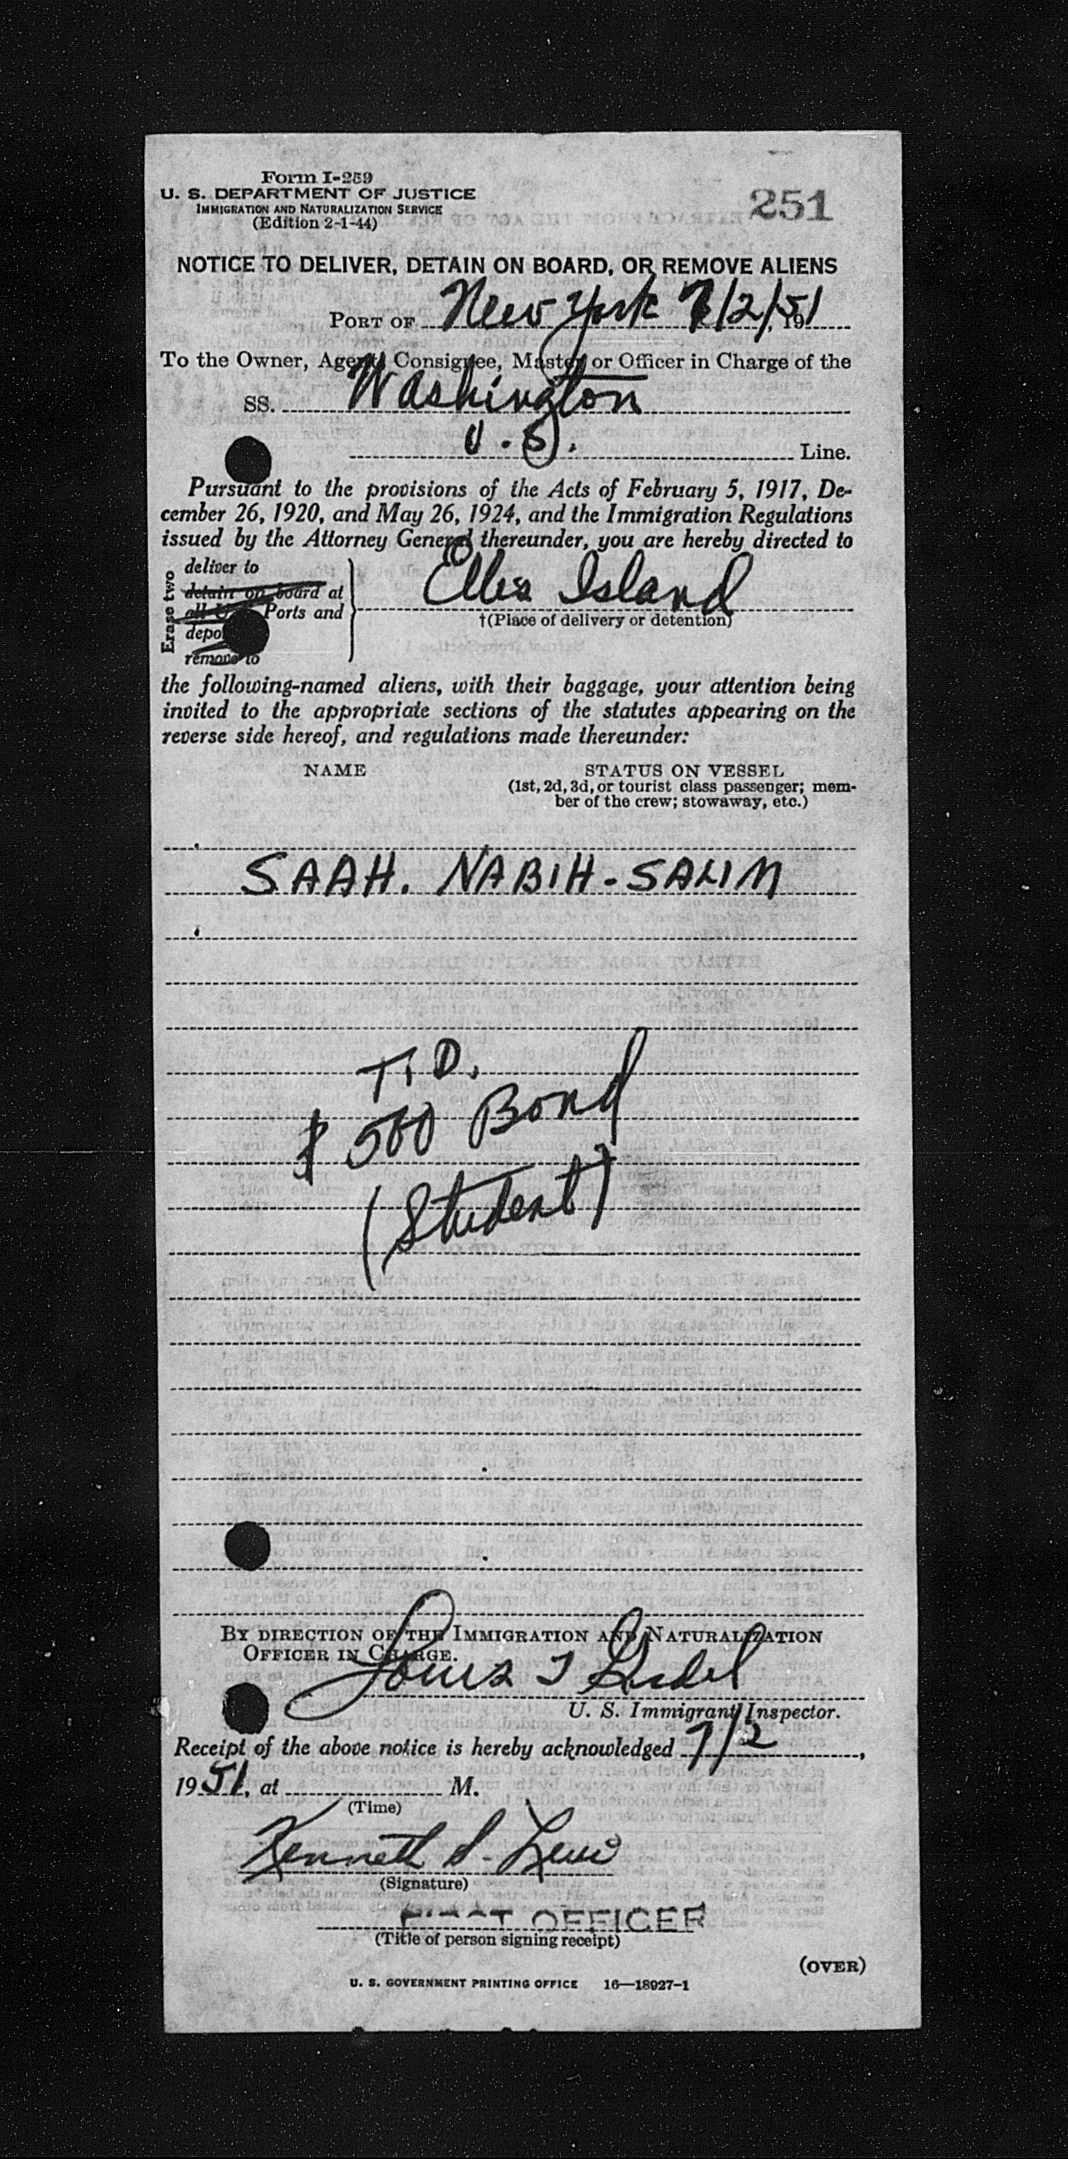 Form I-259
U. S. DEPARTMENT OF JUSTICE
IMMIGRATION AND NATURALIZATION SERVICE
(Edition 2-1-44)
251
NOTICE TO DELIVER, DETAIN ON BOARD, OR REMOVE ALIENS
PORT OF New York 7/2/, 1951
To the Owner, Agent, Consignee, Master or Officer in Charge of the
SS. Washington
U.S. Line.
Pursuant to the provisions of the Acts of February 5, 1917, De-
cember 26, 1920, and May 26, 1924, and the Immigration Regulations
issued by the Attorney General thereunder, you are hereby directed to
Erase two
deliver to
detain on board at
all U. Ports and
depo
remove to
Ellis Island
†(Place of delivery or detention)
the following-named aliens, with their baggage, your attention being
invited to the appropriate sections of the statutes appearing on the
reverse side hereof, and regulations made thereunder:
NAME STATUS ON VESSEL
(1st, 2d, 3d, or tourist class passenger; mem-
ber of the crew; stowaway, etc.)
SAAH. NABIH-SALIM
T.D.
$500 Bond
(Student)
BY DIRECTION OF THE IMMIGRATION AND NATURALIZATION
OFFICER IN CHARGE.
Louis
U. S. Immigrant Inspector.
Receipt of the above notice is hereby acknowledged 7/2,
1951, at M.
(Time)
Kenneth S.
(Signature)
FIRST OFFICER
(Title of person signing receipt)
(OVER)
U. S. GOVERNMENT PRINTING OFFICE 16—18927-1